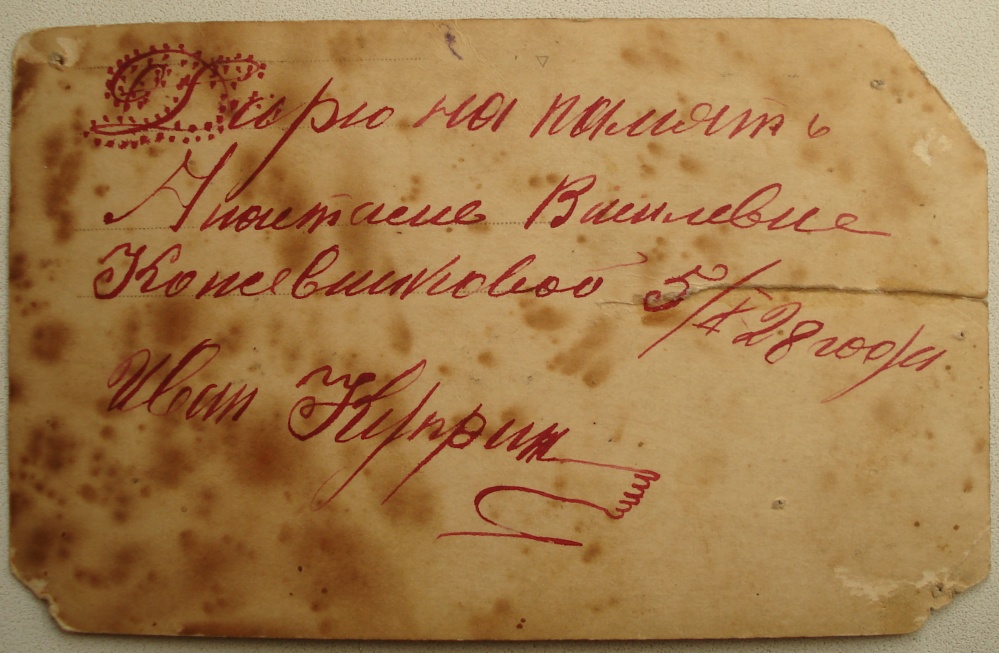 Дарю на память
Анастасие Василевне
Кожевниковой 5/X 28 года
Иван Куприн